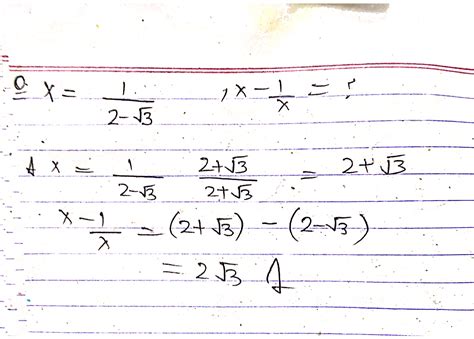 Q x = 1/(2-√3) , x - 1/x = ?
A x = 1/(2-√3) (2+√3)/(2+√3) = 2+√3
x - 1/x = (2+√3) - (2-√3)
= 2√3 A